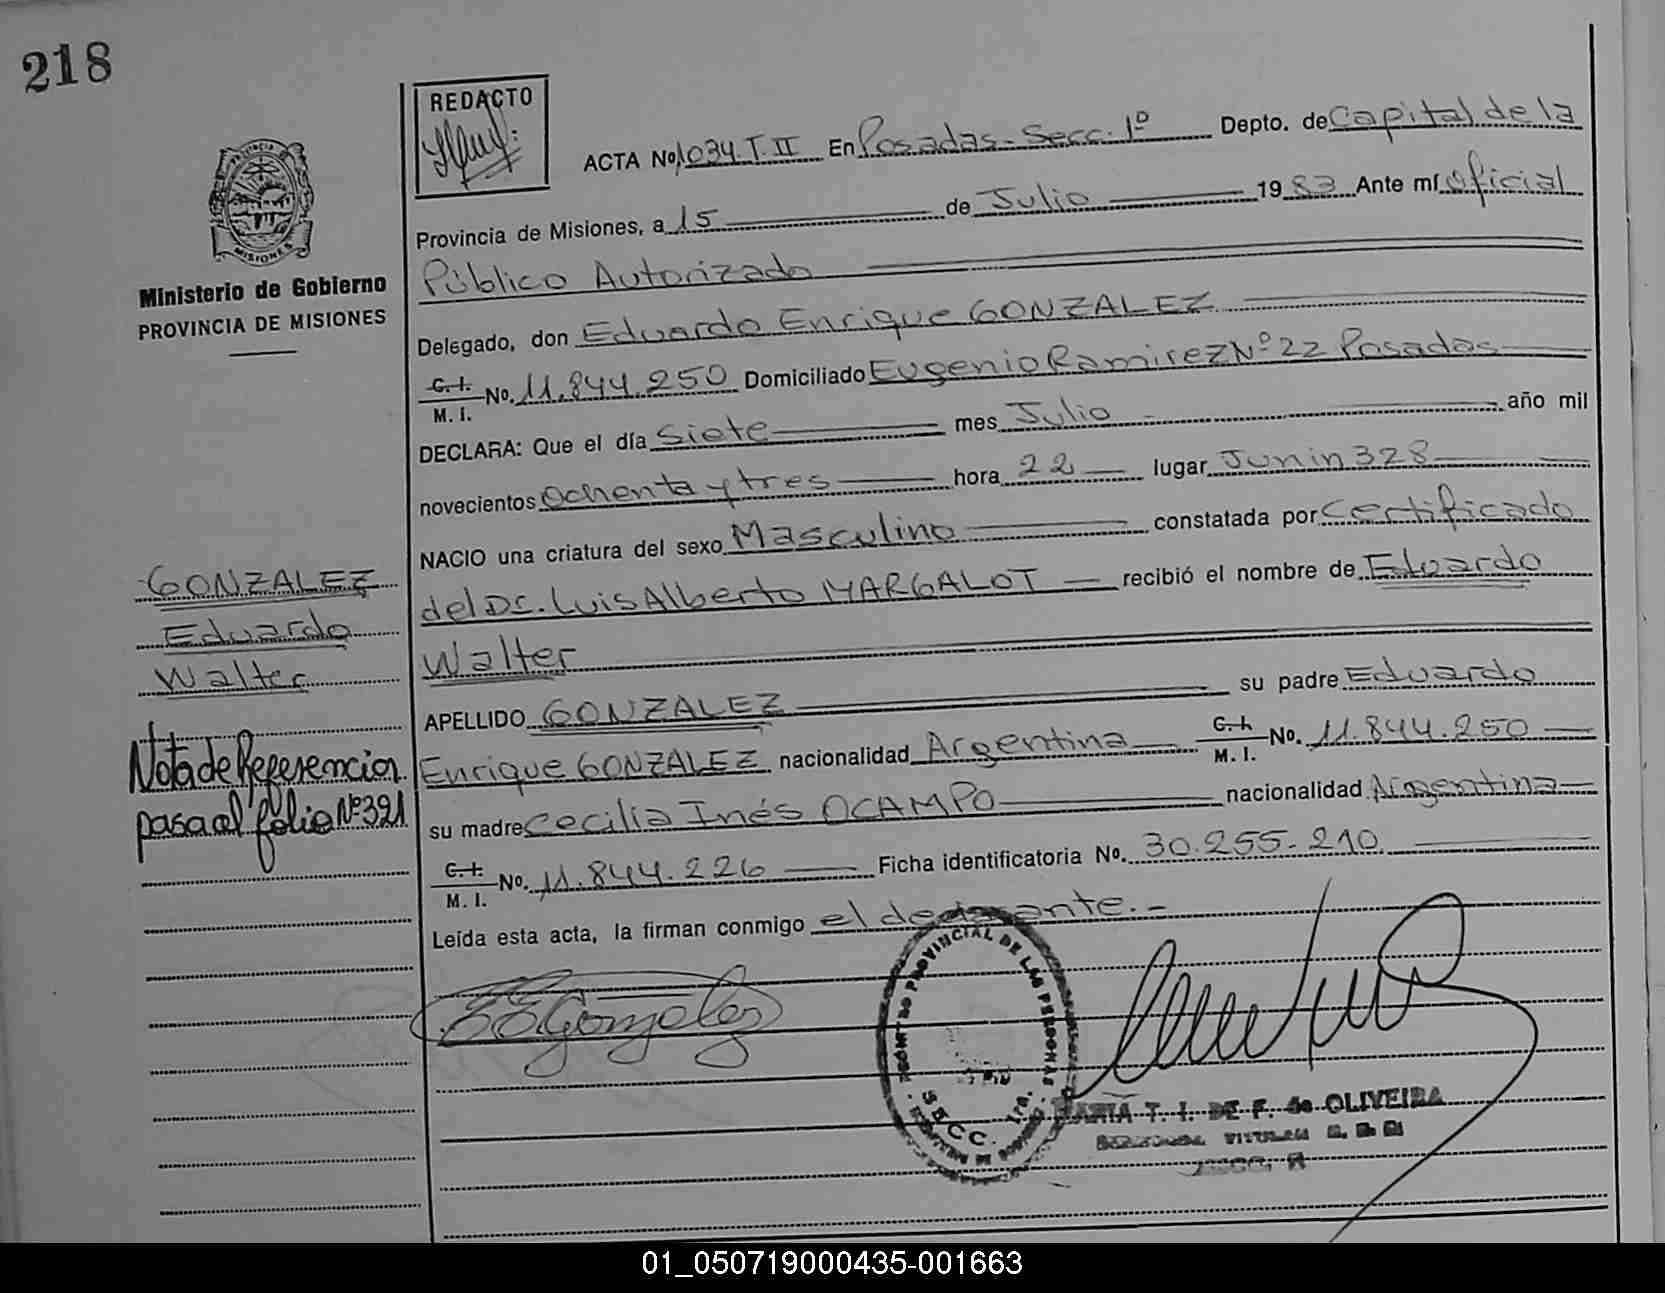 218
REDACTO
ACTA No. 1034 T. II En Posadas - Secc. 1º Depto. de Capital de la
Provincia de Misiones, a 15 de Julio 1983 Ante mí Oficial
Público Autorizado
MISIONES
Ministerio de Gobierno
PROVINCIA DE MISIONES
Delegado, don Eduardo Enrique GONZALEZ
C. I. M. I. No. 11.844.250 Domiciliado Eugenio Ramirez Nº 22 Posadas
DECLARA: Que el día Siete mes Julio año mil
novecientos Ochenta y tres hora 22 lugar Junin 328
NACIO una criatura del sexo Masculino constatada por Certificado
del Dr. Luis Alberto MARGALOT recibió el nombre de Eduardo
Walter
GONZALEZ
Eduardo
Walter
APELLIDO GONZALEZ su padre Eduardo
Enrique GONZALEZ nacionalidad Argentina C. I. M. I. No. 11.844.250
Nota de Referencia
pasa al folio Nº 321
su madre Cecilia Inés OCAMPO nacionalidad Argentina
C. I. M. I. No. 11.844.226 Ficha identificatoria No. 30.255.210
Leída esta acta, la firman conmigo el declarante.-
EEGonzalez
PROVINCIAL DE LAS PERSONAS
SECC. 1ra.
MARIA T. I. DE F. de OLIVEIRA
01_050719000435-001663